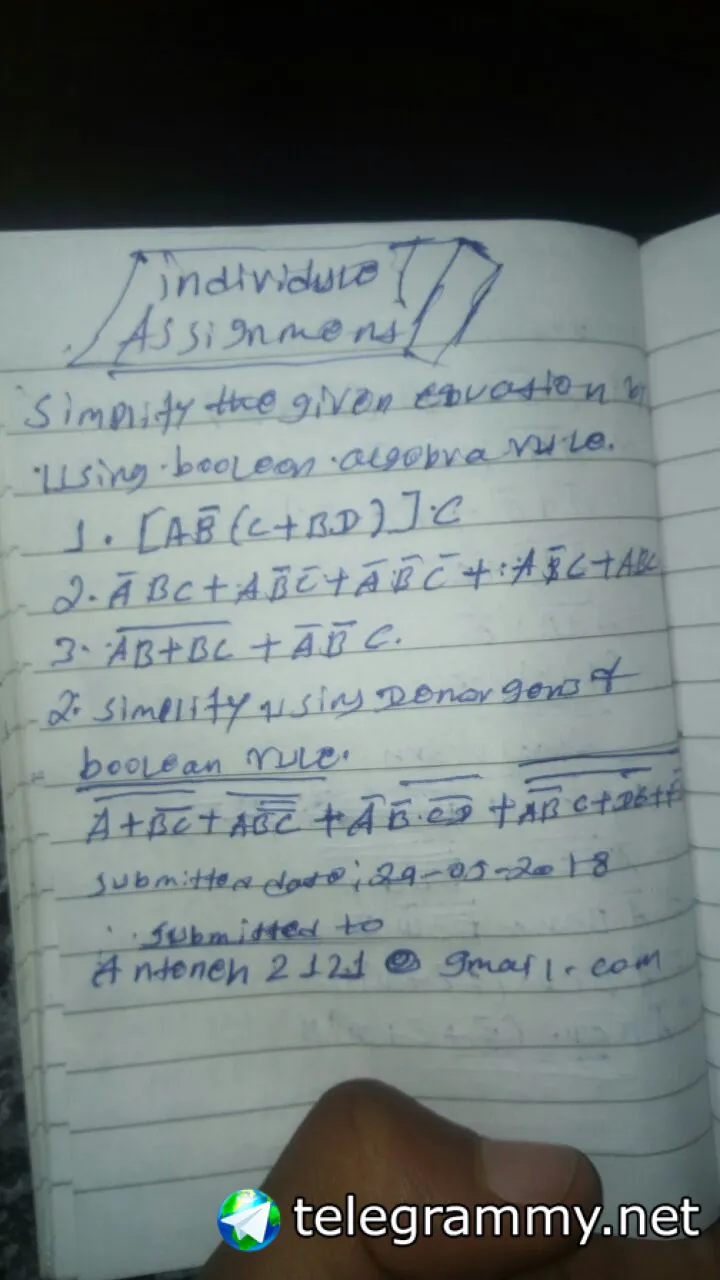 individuro
Assignmens
Simplify the given equation
using boolean algebra rule.
1. [AB̅(C+BD)]·C
2. A̅BC+AB̅C̅+A̅B̅C̅+AB̅C+ABC
3. A̅B̅+̅B̅C̅ + A̅B̅C.
2. simplify using Demorgens &
boolean rule.
submitted date; 29-05-2018
submitted to
Anteneh 2121@gmail.com
telegrammy.net